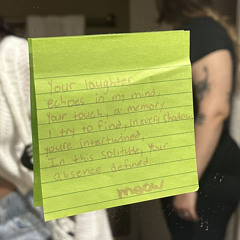 Your laughter
echoes in my mind,
Your touch, a memory
I try to find, In every shadow,
you're intertwined,
In this solitude, your
absence defined.
meow